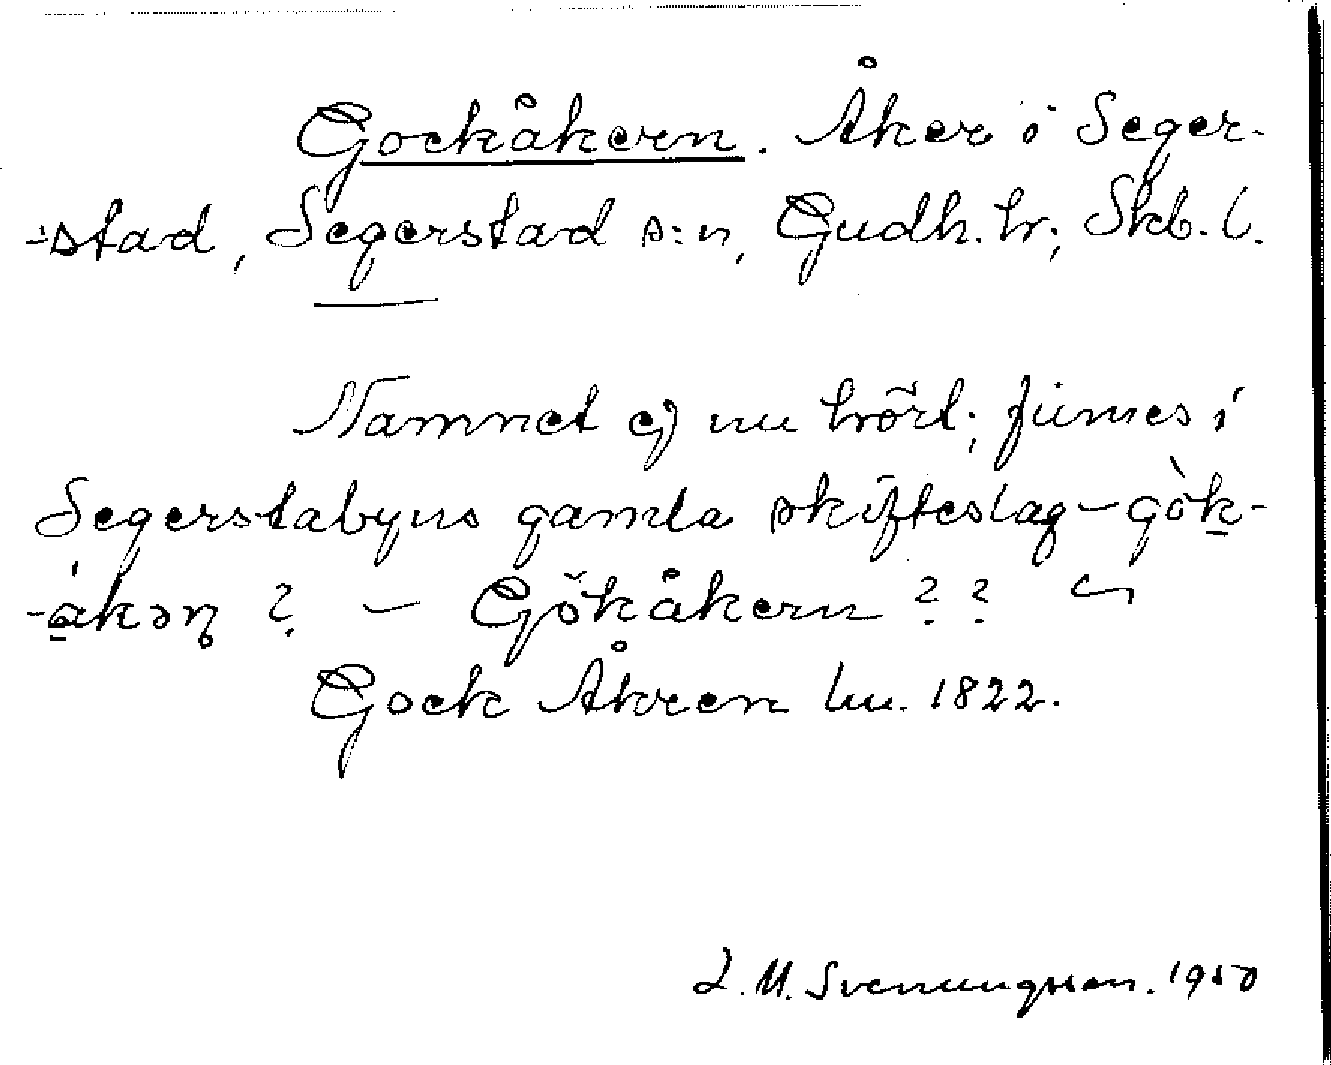 Gockåkern. Åker i Seger-
-stad, Segerstad s:n, Gudh. hr; Skb. l.
Namnet ej nu hört; finnes i
Segerstabyns gamla skifteslag - gòk-
-åkəɳ ? - Gökåkern ? ?
Gock Åkren hu. 1822.
L. M. Svenungsson. 1950